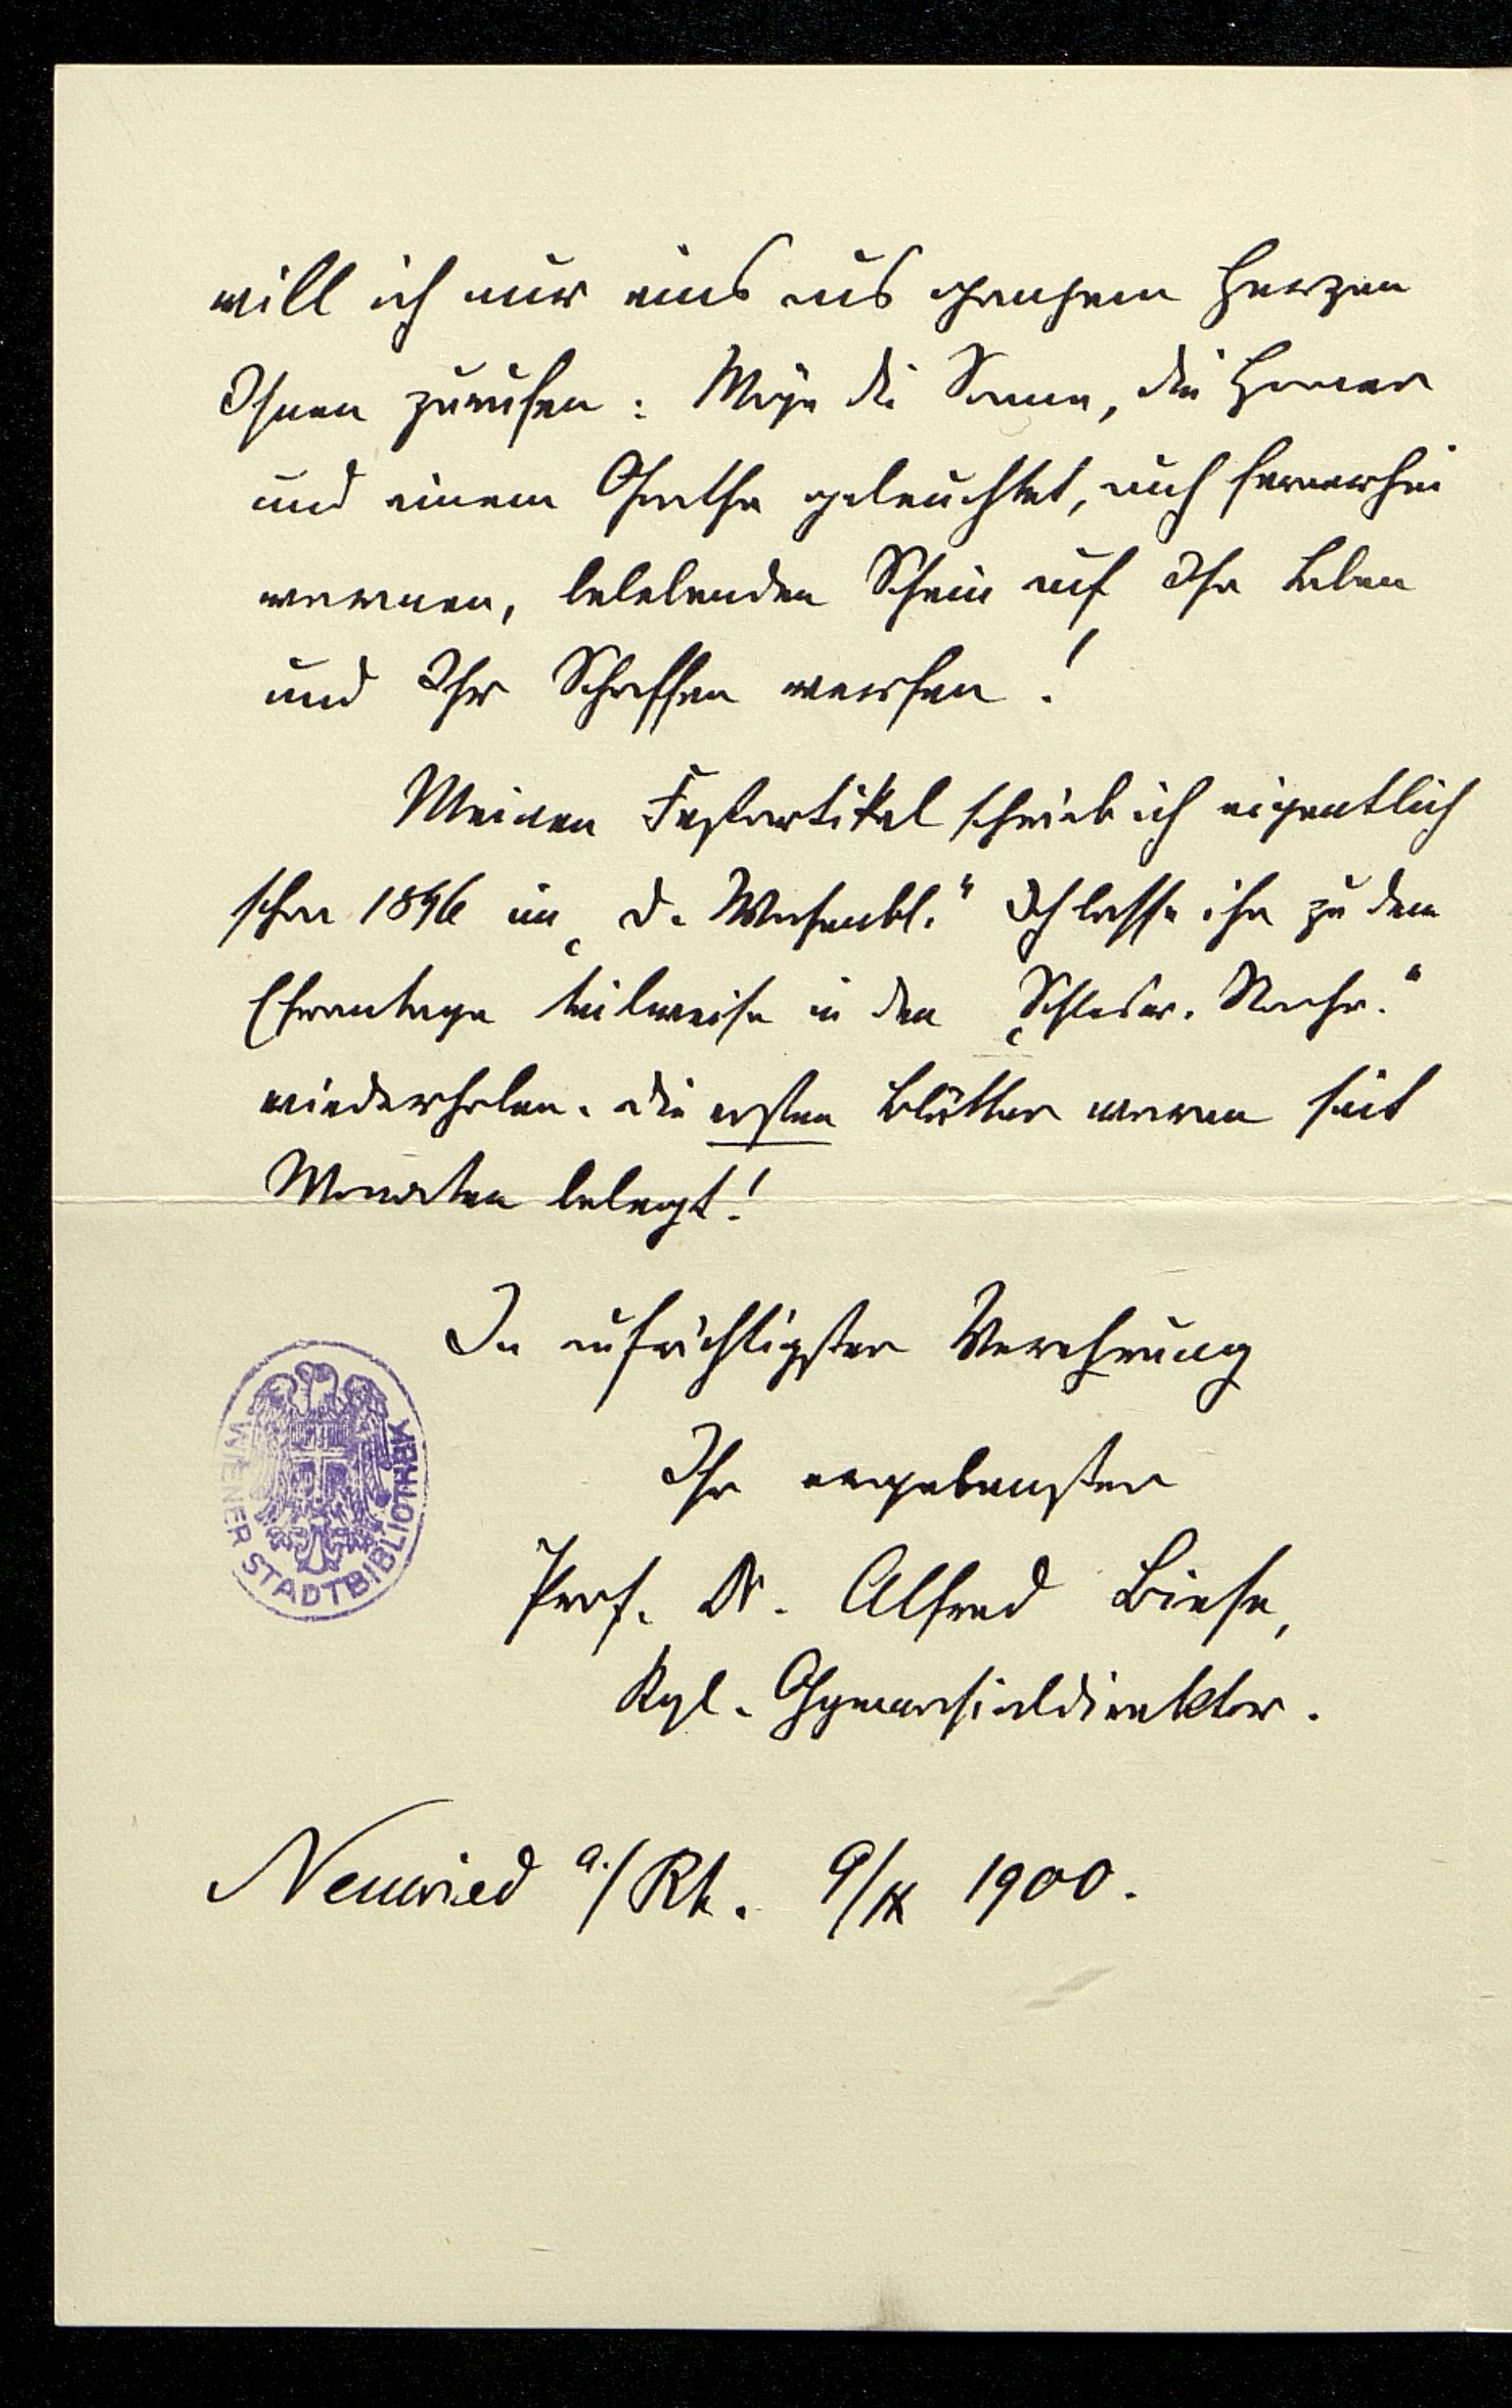 will ich nur eins aus ganzem Herzen
Ihnen zurufen: Möge die Sonne, die Homer
und einem Goethe geleuchtet, auch fernerhin
warmen, belebenden Schein auf Ihr Leben
und Ihr Schaffen werfen!
Meinen Festartikel schrieb ich eigentlich
schon 1896 im „D. Wochenbl.“ Ich lasse ihn zu dem
Ehrentage teilweise in den „Schlesw. Nachr.“
wiederholen. Die ersten Blätter waren seit
Monaten belegt!
In aufrichtigster Verehrung
Ihr ergebenster
Prof. Dr. Alfred Biese,
Kgl. Gymnasialdirektor.
WIENER STADTBIBLIOTHEK
Neuwied a./Rh. 9/IX 1900.